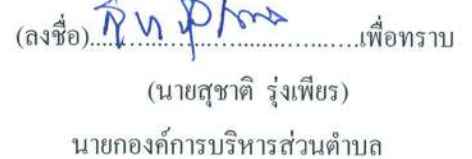 (ลงชื่อ)..............................................เพื่อทราบ
(นายสุชาติ รุ่งเพียร)
นายกองค์การบริหารส่วนตำบล